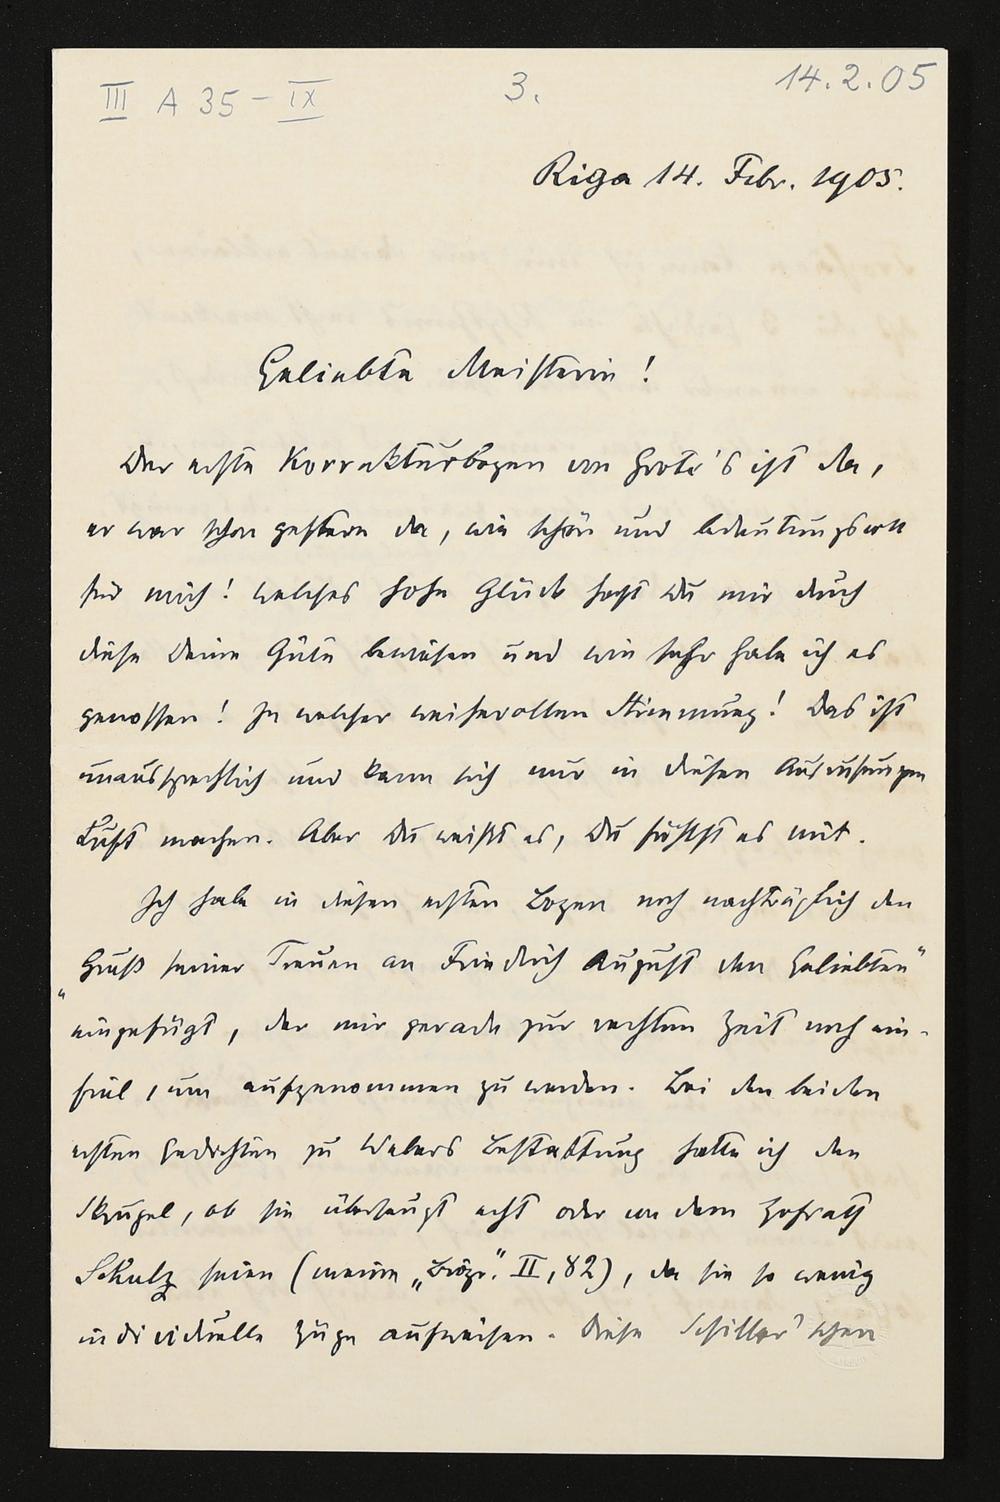 III A 35 – IX
3.
14.2.05
Riga 14. Febr. 1905.
Geliebte Meisterin!
Der erste Korrekturbogen von Grote's ist da,
er war schon gestern da, wie schön und bedeutungsvoll
für mich! welches hohe Glück hast Du mir durch
diese Deine Güte bewiesen und wie sehr habe ich es
genossen! In welcher weihevollen Stimmung! Das ist
unaussprechlich und kann sich nur in diesen Ausrufungen
Luft machen. Aber Du weißt es, Du fühlst es mit.
Ich habe in diesen ersten Bogen noch nachträglich den
„Gruß seiner Treuen an Friedrich August den Geliebten"
eingefügt, der mir gerade zur rechten Zeit noch ein-
fiel, um aufgenommen zu werden. Bei den beiden
ersten Gedichten zu Webers Bestattung hatte ich den
Skrupel, ob sie überhaupt echt oder von dem Hofrath
Schulz seien (meine „Biogr." II, 82), da sie so wenig
individuelle Züge aufweisen. Diese Schiller'schen